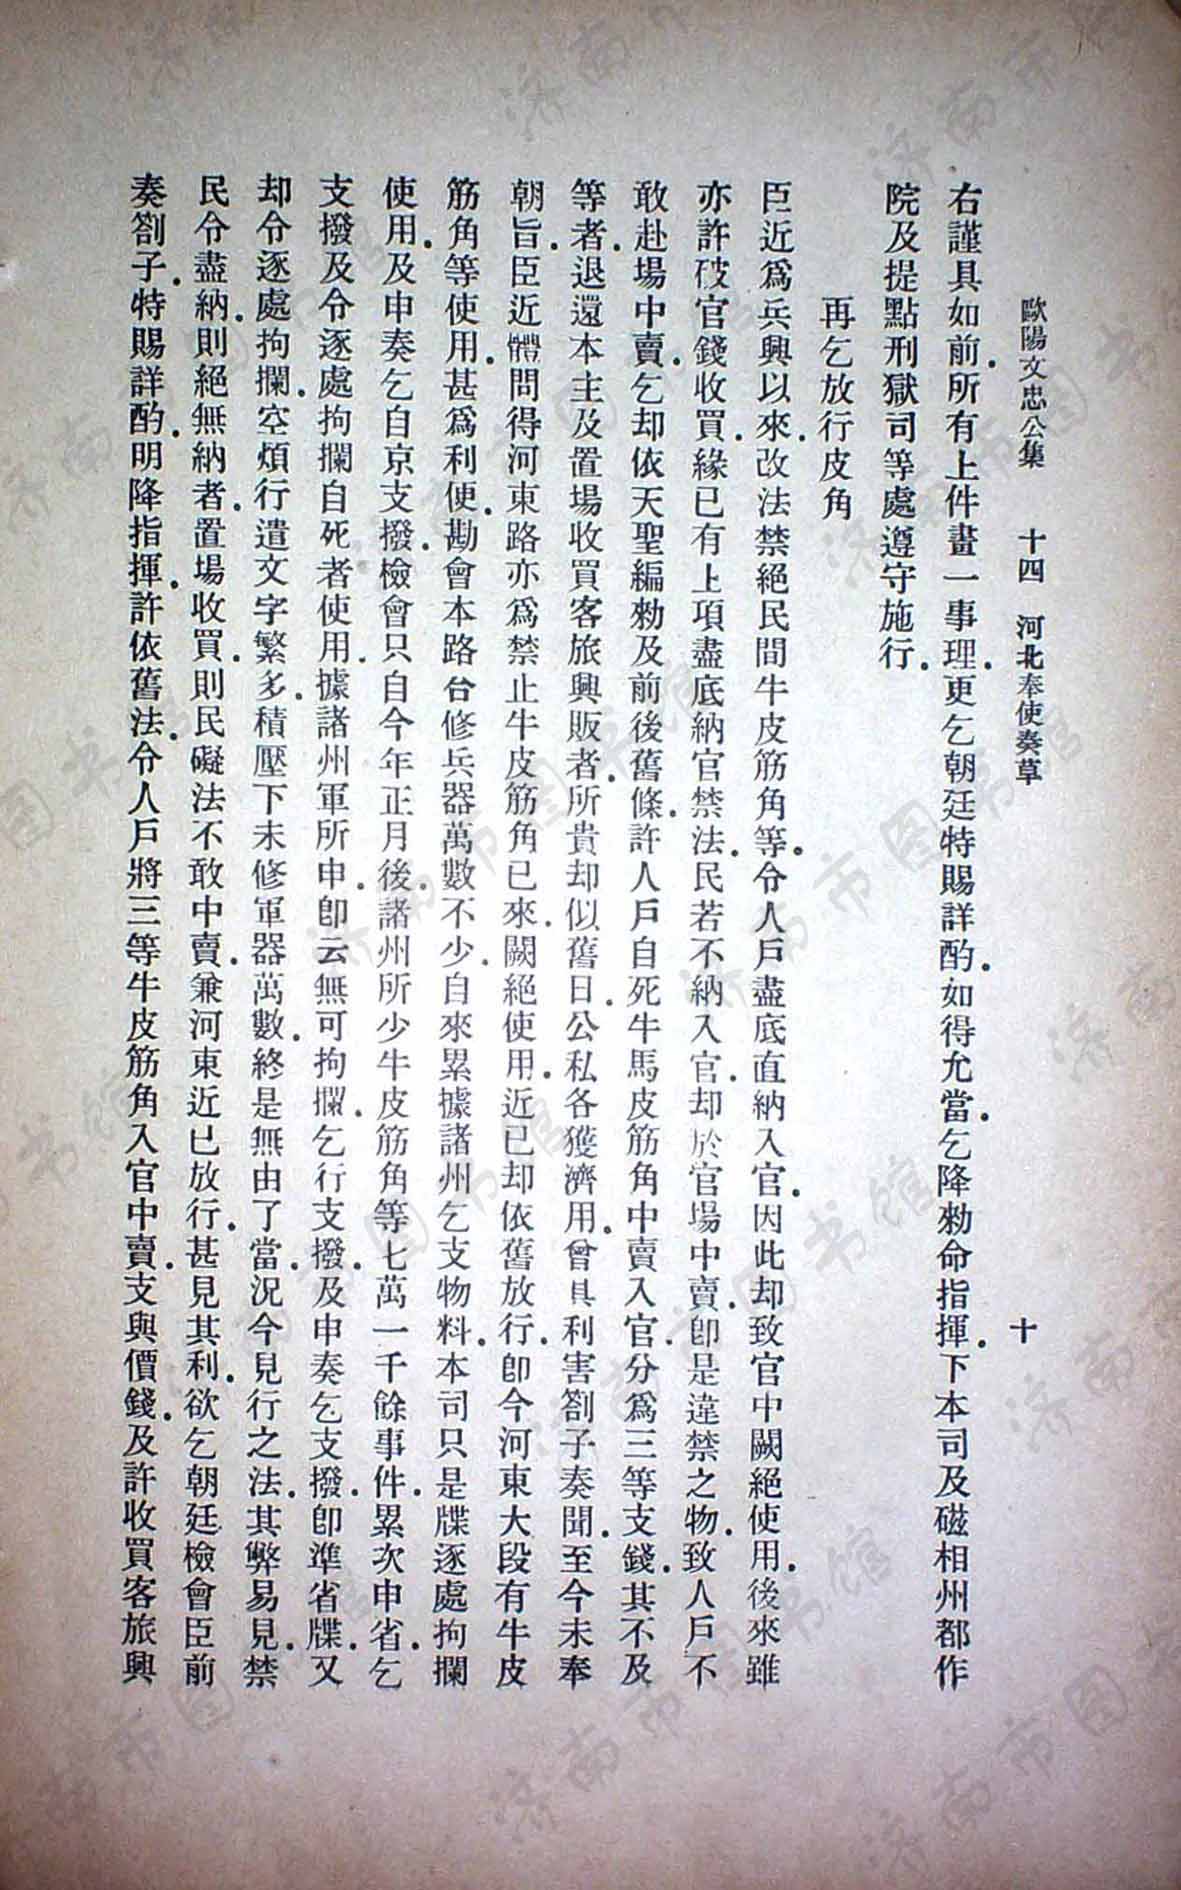 歐陽文忠公集　十四　河北奉使奏草　十
右謹具如前.所有上件畫一事理.更乞朝廷特賜詳酌.如得允當.乞降勑命指揮.下本司及磁相州都作
院及提點刑獄司等處遵守施行.
再乞放行皮角
臣近爲兵興以來.改法禁絕民間牛皮筋角等.令人戶盡底直納入官.因此却致官中闕絕使用.後來雖
亦許破官錢收買.緣已有上項盡底納官禁法.民若不納入官.却於官場中賣.卽是違禁之物.致人戶不
敢赴場中賣.乞却依天聖編勑及前後舊條.許人戶自死牛馬皮筋角中賣入官.分爲三等支錢.其不及
等者.退還本主及置場收買客旅興販者.所貴却似舊日.公私各獲濟用.曾具利害劄子奏聞.至今未奉
朝旨.臣近體問得河東路亦爲禁止牛皮筋角已來.闕絕使用.近已却依舊放行.卽今河東大段有牛皮
筋角等使用.甚爲利便.勘會本路合修兵器萬數不少.自來累據諸州乞支物料.本司只是牒逐處拘攔
使用.及申奏乞自京支撥.檢會只自今年正月後.諸州所少牛皮筋角等七萬一千餘事件.累次申省.乞
支撥及令逐處拘攔自死者使用.據諸州軍所申.卽云無可拘攔.乞行支撥.及申奏乞支撥.卽準省牒.又
却令逐處拘攔.空煩行遣文字繁多.積壓下未修軍器萬數.終是無由了當.況今見行之法.其弊易見.禁
民令盡納.則絕無納者.置場收買.則民礙法不敢中賣.兼河東近已放行.甚見其利.欲乞朝廷檢會臣前
奏劄子.特賜詳酌.明降指揮.許依舊法.令人戶將三等牛皮筋角入官中賣.支與價錢.及許收買客旅興
济南市图书馆